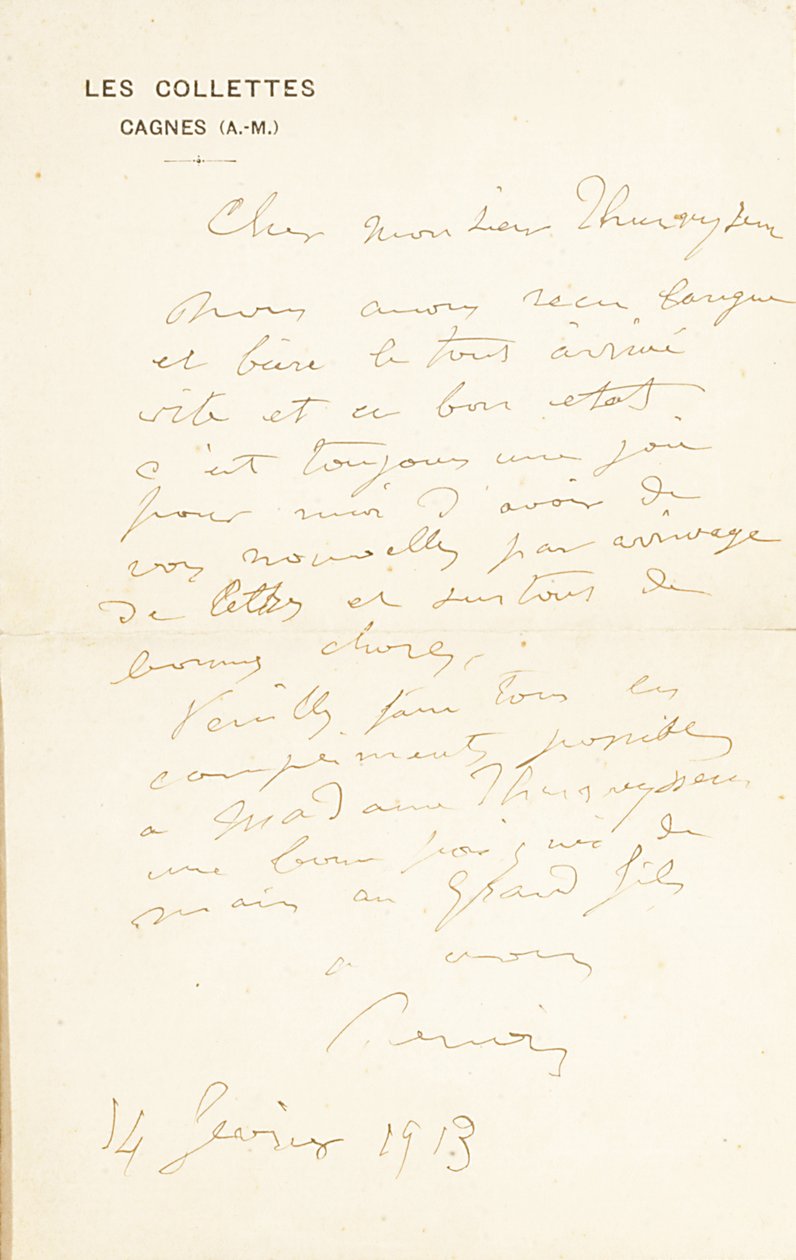 LES COLLETTES
CAGNES (A.-M.)
Cher Monsieur Thurneyssen
nous avons recu
et bière le tout arrivé
vite et en bon etat
c'est toujours une joie
pour moi d'avoir de
vos nouvelles par arrivage
de lettres et surtout de
bonnes choses,
Veuillez faire tous les
compliments possibles
a Madame Thurneyssen
une bonne poignée de
main au grand fils
a vous
Renoir
14 fevrier 1913